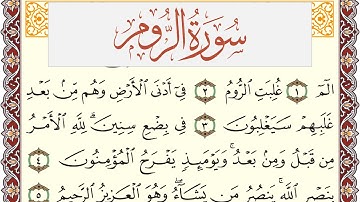 سُورَةُ الرُّومِ
الٓمٓ ١ غُلِبَتِ ٱلرُّومُ ٢ فِيٓ أَدۡنَى ٱلۡأَرۡضِ وَهُم مِّنۢ بَعۡدِ
غَلَبِهِمۡ سَيَغۡلِبُونَ ٣ فِي بِضۡعِ سِنِينَۗ لِلَّهِ ٱلۡأَمۡرُ
مِن قَبۡلُ وَمِنۢ بَعۡدُۚ وَيَوۡمَئِذٖ يَفۡرَحُ ٱلۡمُؤۡمِنُونَ ٤
بِنَصۡرِ ٱللَّهِۚ يَنصُرُ مَن يَشَآءُۖ وَهُوَ ٱلۡعَزِيزُ ٱلرَّحِيمُ ٥